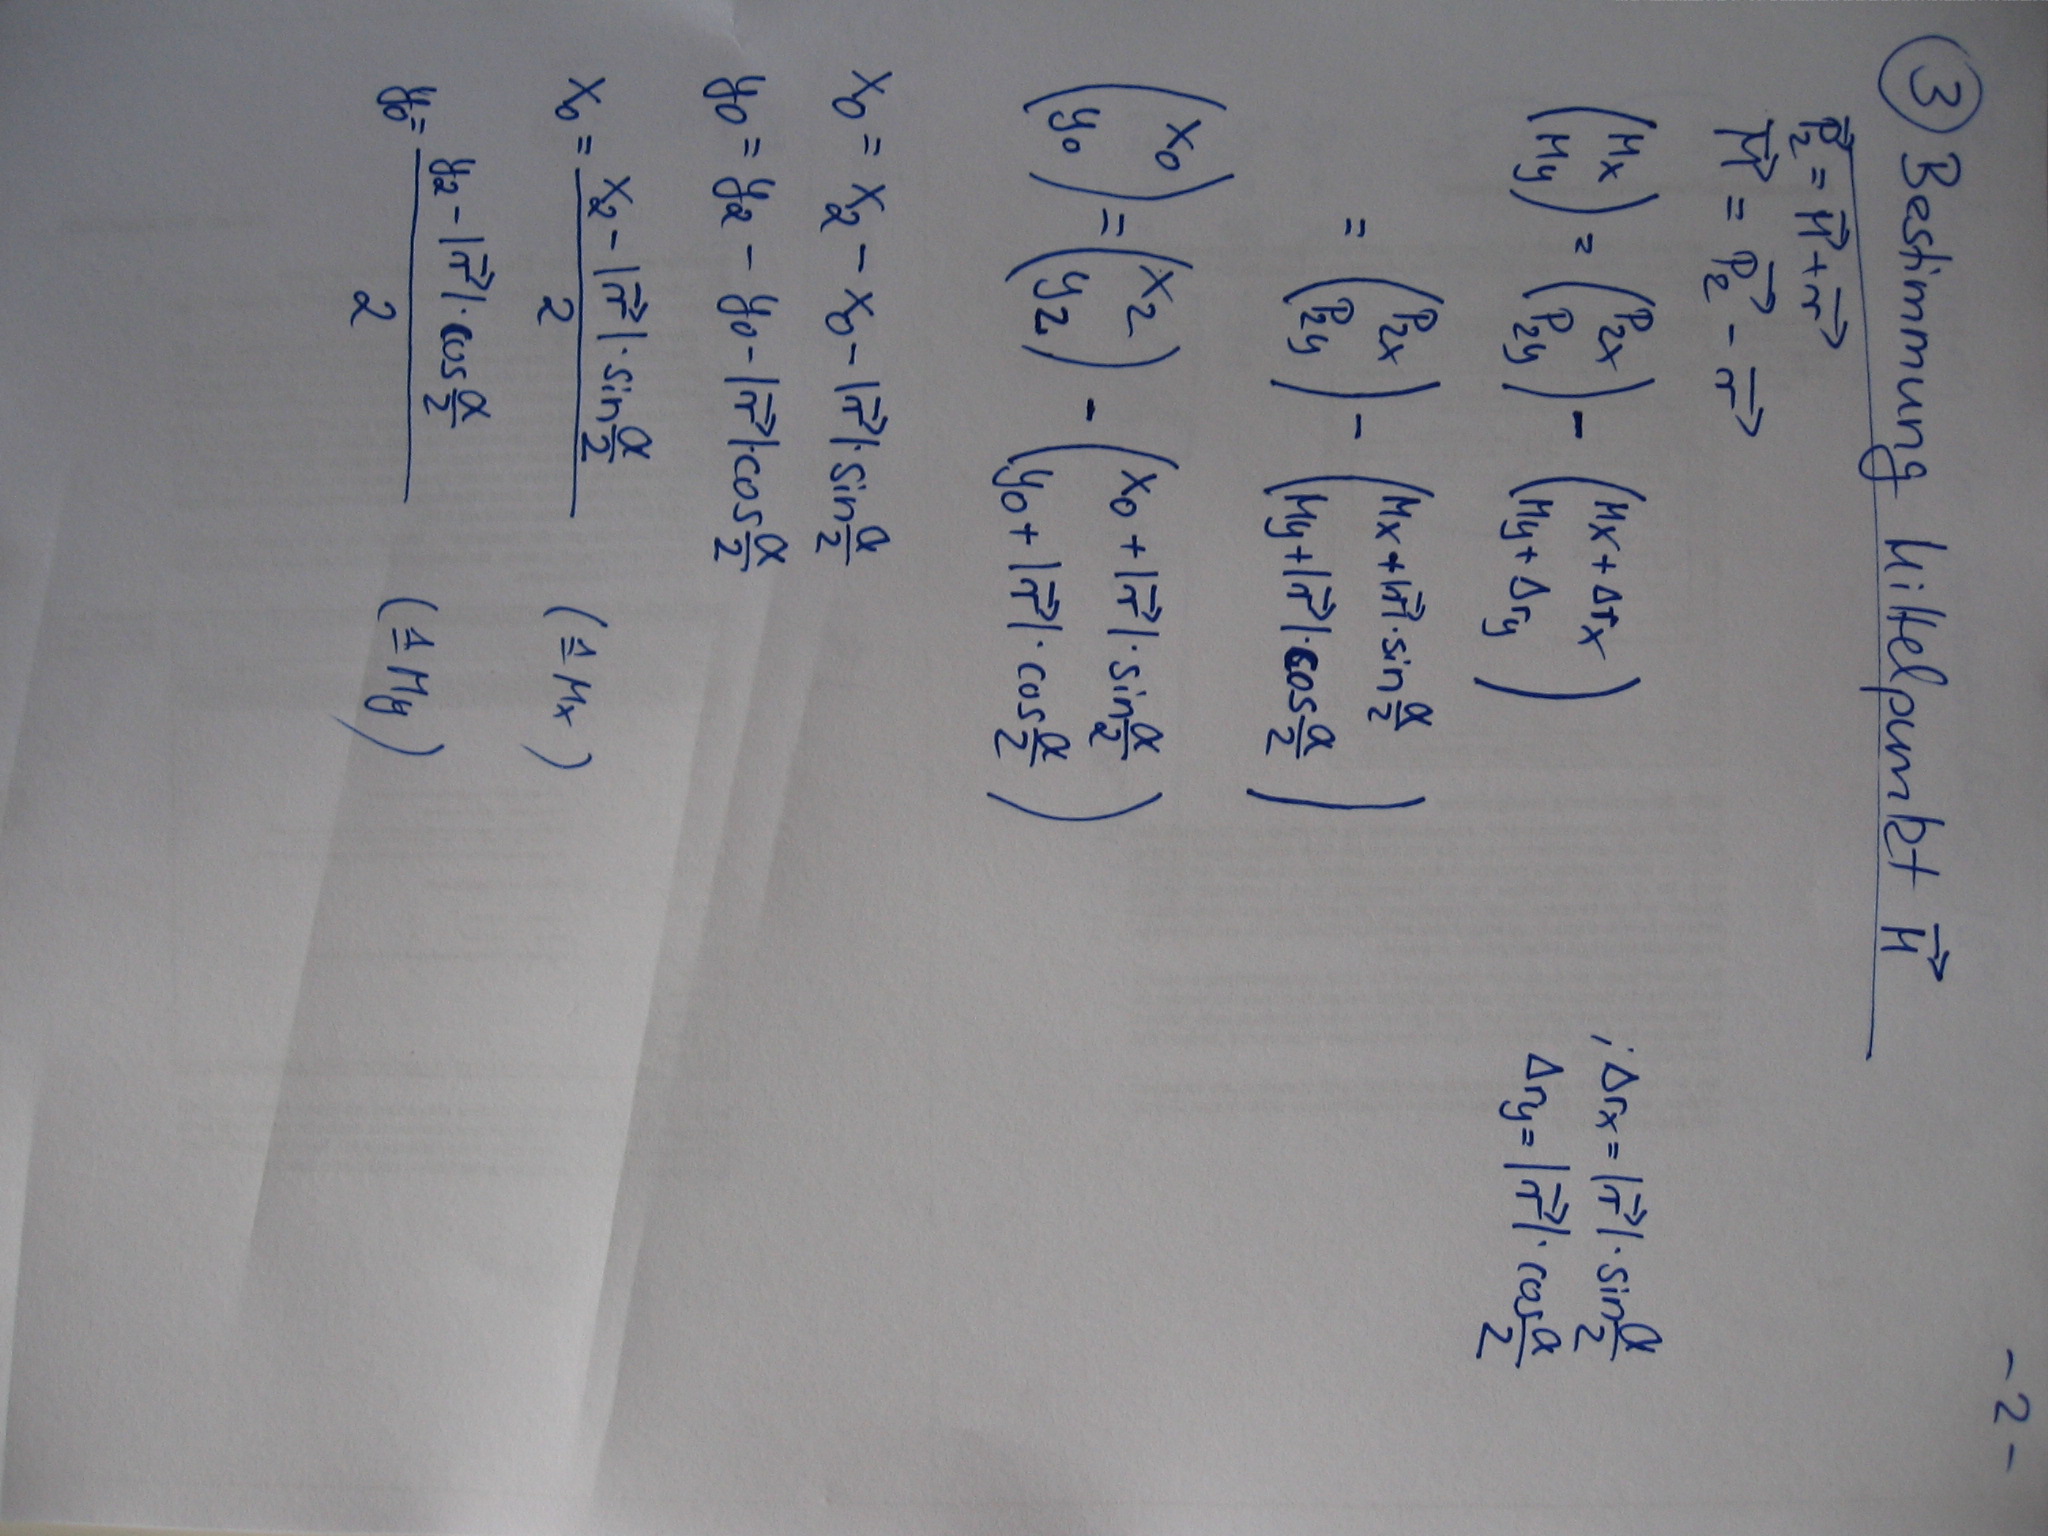 - 2 -
③ Bestimmung Mittelpunkt M⃗
P⃗₂ = M⃗ + r⃗
M⃗ = P⃗₂ - r⃗
(Mx My) = (P2x P2y) - (Mx + Δrx My + Δry) ; Δrx = |r⃗| · sin α/2 Δry = |r⃗| · cos α/2
= (P2x P2y) - (Mx + |r⃗| · sin α/2 My + |r⃗| · cos α/2)
(x₀ y₀) = (x₂ y₂) - (x₀ + |r⃗| · sin α/2 y₀ + |r⃗| · cos α/2)
x₀ = x₂ - x₀ - |r⃗| · sin α/2
y₀ = y₂ - y₀ - |r⃗| · cos α/2
x₀ = (x₂ - |r⃗| · sin α/2) / 2 (≙ Mx)
y₀ = (y₂ - |r⃗| · cos α/2) / 2 (≙ My)